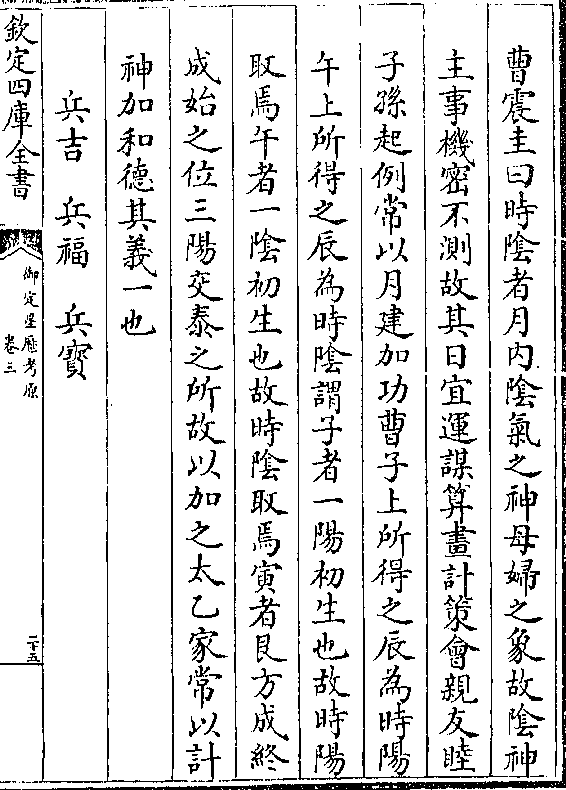 曹震圭曰時陰者月内陰氣之神母婦之象故陰神
主事機密不測故其日宜運謀算畫計策會親友睦
子孫起例常以月建加功曹子上所得之辰為時陽
午上所得之辰為時陰謂子者一陽初生也故時陽
取焉午者一陰初生也故時陰取焉寅者艮方成終
成始之位三陽交泰之所故以加之太乙家常以計
神加和德其義一也
兵吉 兵福 兵寳
欽定四庫全書
御定星厯考原
卷三
二十五